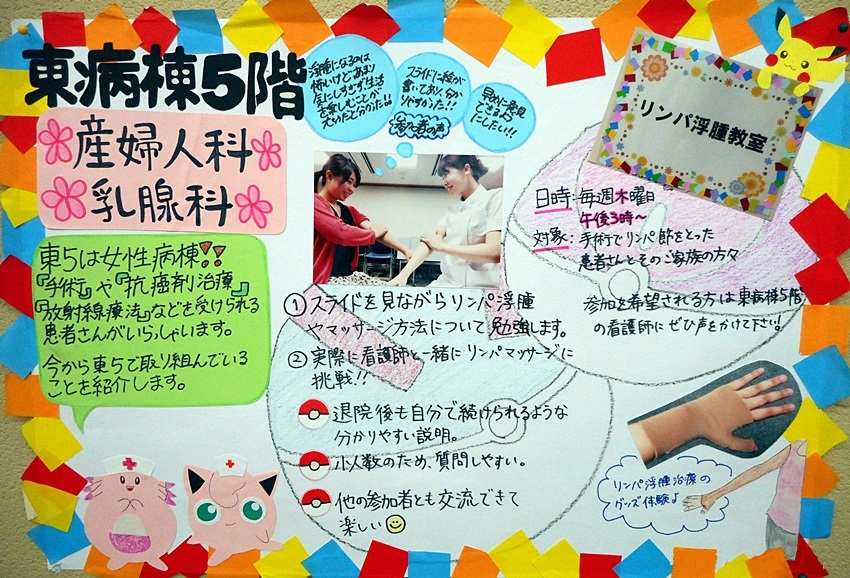 東病棟5階
産婦人科
乳腺科
東5は女性病棟!!
『手術』や『抗癌剤治療』
『放射線療法』などを受けられる
患者さんがいらっしゃいます。
今から東5で取り組んでいる
ことを紹介します。
浮腫になるのは
怖いけどあまり
気にしすぎず生活
を楽しむことが
大切だと分かった。
スライドに絵が
書いてあり、分か
りやすかった!!
早めに発見
できるよう
にしたい!!
参加者の声
リンパ浮腫教室
日時：毎週木曜日
午後3時〜
対象：手術でリンパ節をとった
患者さんとそのご家族の方々
参加を希望される方は東病棟5階
の看護師にぜひ声をかけて下さい!
①スライドを見ながらリンパ浮腫
やマッサージ方法について勉強します。
②実際に看護師と一緒にリンパマッサージに
挑戦!!
退院後も自分で続けられるような
分かりやすい説明。
少人数のため、質問しやすい。
他の参加者とも交流できて
楽しい
リンパ浮腫治療の
グッズ体験♪